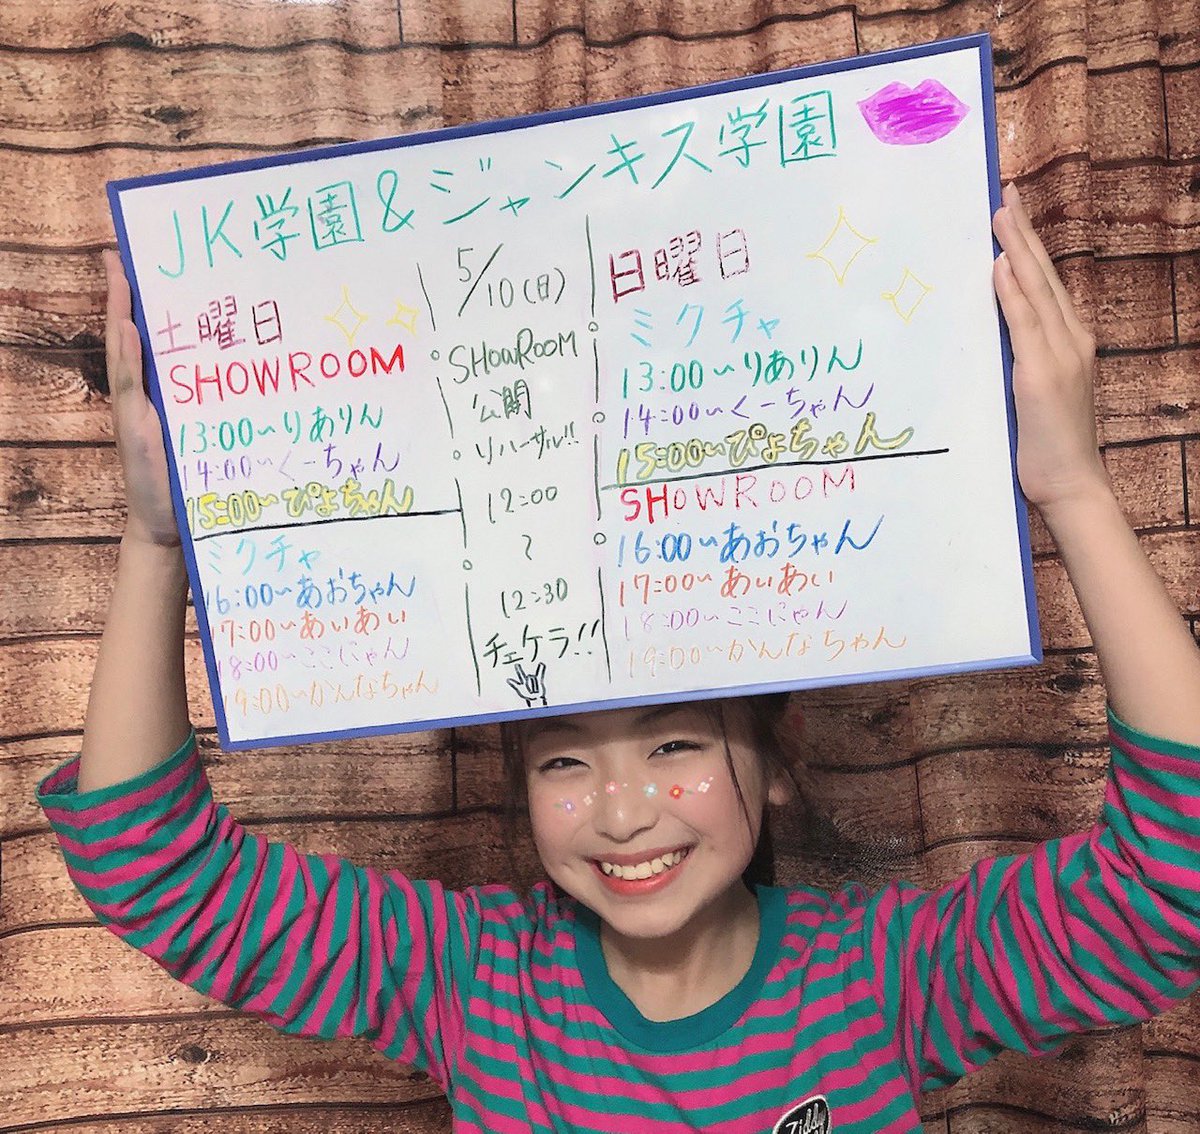 JK学園&ジャンキス学園
土曜日
SHOWROOM
13:00〜りありん
14:00〜くーちゃん
15:00〜ぴよちゃん
ミクチャ
16:00〜あおちゃん
17:00〜あいあい
18:00〜ここにゃん
19:00〜かんなちゃん
5/10(日)
SHOWROOM
公開
リハーサル!!
12:00
〜
12:30
チェケラ!!
日曜日
ミクチャ
13:00〜りありん
14:00〜くーちゃん
15:00〜ぴよちゃん
SHOWROOM
16:00〜あおちゃん
17:00〜あいあい
18:00〜ここにゃん
19:00〜かんなちゃん
Ziddy